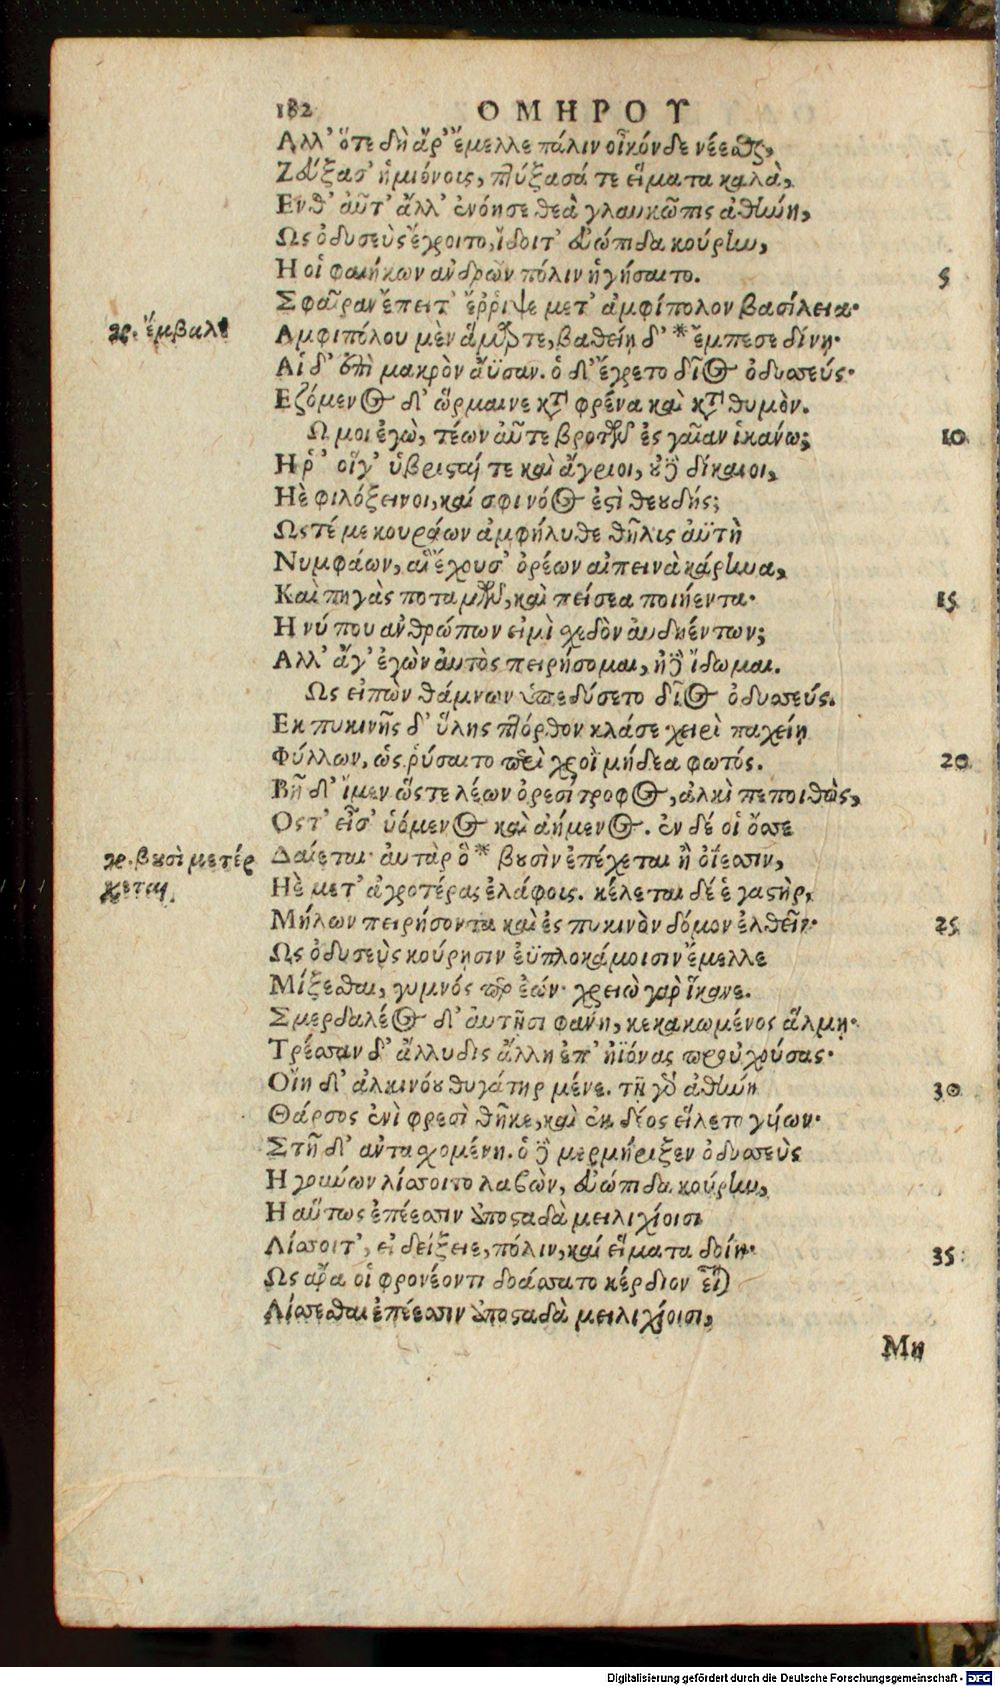 182 ΟΜΗΡΟΥ
Αλλ' ὅτε δὴ ἄρ' ἔμελλε πάλιν οἶκόνδε νέεσθαι,
Ζεύξασ' ἡμιόνοις, πτύξασά τε εἵματα καλὰ,
Ενθ' αὖτ' ἄλλ' ἐνόησε θεὰ γλαυκῶπις ἀθήνη,
Ως ὀδυσεὺς ἔγροιτο, ἴδοιτ' εὐώπιδα κούρην,
Η οἱ φαιήκων ἀνδρῶν πόλιν ἡγήσαιτο. 5
Σφαῖραν ἔπειτ' ἔῤῥιψε μετ' ἀμφίπολον βασίλεια·
γρ. ἔμβαλε Αμφιπόλου μὲν ἅμαρτε, βαθείῃ δ' * ἔμπεσε δίνῃ·
Αἱ δ' ἐπὶ μακρὸν ἄϋσαν. ὁ δ' ἔγρετο δῖος ὀδυσσεύς·
Εζόμενος δ' ὥρμαινε κατὰ φρένα καὶ κατὰ θυμὸν.
Ω μοι ἐγὼ, τέων αὖτε βροτῶν ἐς γαῖαν ἱκάνω; 10
Η ῥ' οἵγ' ὑβρισταί τε καὶ ἄγριοι, οὐδὲ δίκαιοι,
Ηὲ φιλόξεινοι, καί σφι νόος ἐστὶ θεουδής;
Ωστέ με κουράων ἀμφήλυθε θῆλις ἀϋτὴ
Νυμφάων, αἳ ἔχουσ' ὀρέων αἰπεινὰ κάρηνα,
Καὶ πηγὰς ποταμῶν, καὶ πείσεα ποιήεντα· 15
Η νύ που ἀνθρώπων εἰμὶ σχεδὸν αὐδηέντων;
Αλλ' ἄγ' ἐγὼν αὐτὸς πειρήσομαι, ἠδὲ ἴδωμαι.
Ως εἰπὼν θάμνων ὑπεδύσετο δῖος ὀδυσσεύς.
Εκ πυκινῆς δ' ὕλης πτόρθον κλάσε χειρὶ παχείῃ
Φύλλων, ὡς ῥύσαιτο περὶ χροῒ μήδεα φωτός. 20
Βῆ δ' ἴμεν ὥστε λέων ὀρεσίτροφος, ἀλκὶ πεποιθὼς,
Οστ' εἶσ' ὑόμενος καὶ ἀήμενος. ἐν δέ οἱ ὄσσε
γρ. βουσὶ μετέρ Δαίεται· αὐτὰρ ὃ * βουσὶν ἐπέχεται ἢ ὀΐεσσιν,
χεται. Ηὲ μετ' ἀγροτέρας ἐλάφοις. κέλεται δέ ἑ γαστὴρ,
Μήλων πειρήσοντα καὶ ἐς πυκινὸν δόμον ἐλθεῖν· 25
Ως ὀδυσεὺς κούρησιν ἐϋπλοκάμοισιν ἔμελλε
Μίξεσθαι, γυμνός περ ἐών· χρειὼ γὰρ ἵκανε.
Σμερδαλέος δ' αὐτῇσι φάνη, κεκακωμένος ἅλμῃ·
Τρέσσαν δ' ἄλλυδις ἄλλη ἐπ' ἠϊόνας προὐχούσας·
Οἴη δ' ἀλκινόου θυγάτηρ μένε. τῇ γὰρ ἀθήνη 30
Θάρσος ἐνὶ φρεσὶ θῆκε, καὶ ἐκ δέος εἵλετο γυίων·
Στῆ δ' ἄντα σχομένη. ὁ δὲ μερμήριξεν ὀδυσσεὺς
Η γούνων λίσσοιτο λαβὼν, εὐώπιδα κούρην,
Η αὔτως ἐπέεσσιν ἀποσταδὰ μειλιχίοισι
Λίσσοιτ', εἰ δείξειε, πόλιν, καί εἵματα δοίη· 35
Ως ἄρα οἱ φρονέοντι δοάσσατο κέρδιον εἶναι
Λίσσεσθαι ἐπέεσσιν ἀποσταδὰ μειλιχίοισι,
Μη
Digitalisierung gefördert durch die Deutsche Forschungsgemeinschaft - DFG